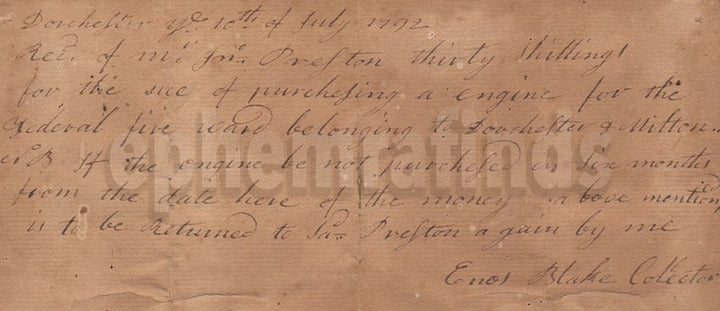 Dorchester ye 10th of July 1792
Recd. of mr. Jno. Preston thirty Shillings
for the use of purchesing a engine for the
Federal fire ward belonging to Dorchester & Milton.
NB If the engine be not purchesed in Six months
from the date here of the money above mentiond
is to be Returned to Preston again by me
Enos Blake Colector
ephemerafinds